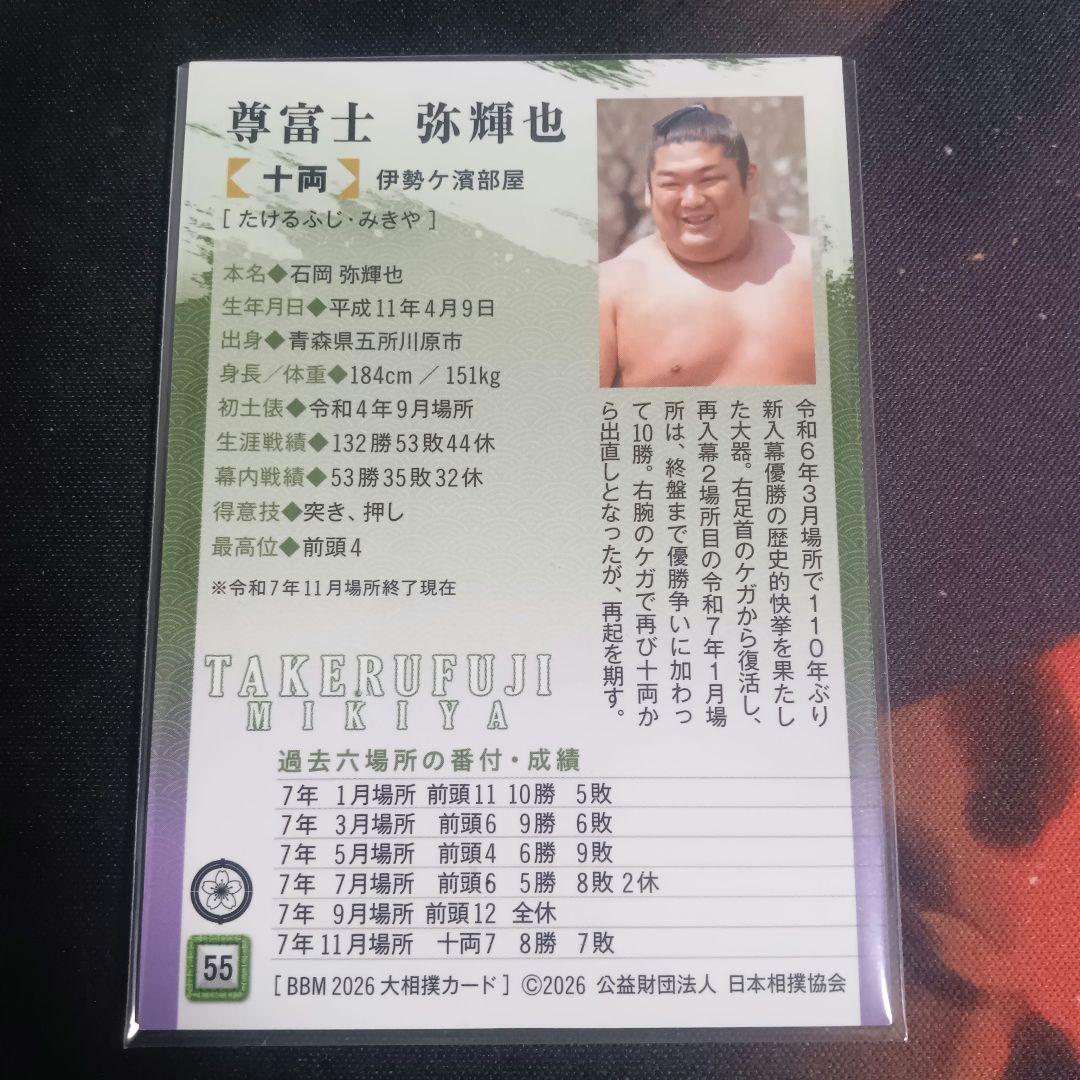 尊富士 弥輝也
【十両】 伊勢ケ濱部屋
[ たけるふじ・みきや ]
本名◆石岡 弥輝也
生年月日◆平成11年4月9日
出身◆青森県五所川原市
身長／体重◆184cm ／ 151kg
初土俵◆令和4年9月場所
生涯戦績◆132勝53敗44休
幕内戦績◆53勝35敗32休
得意技◆突き、押し
最高位◆前頭4
※令和7年11月場所終了現在
令和6年3月場所で110年ぶり
新入幕優勝の歴史的快挙を果たし
た大器。右足首のケガから復活し、
再入幕2場所目の令和7年1月場
所は、終盤まで優勝争いに加わっ
て10勝。右腕のケガで再び十両か
ら出直しとなったが、再起を期す。
TAKERUFUJI
MIKIYA
過去六場所の番付・成績
7年 1月場所 前頭11 10勝 5敗
7年 3月場所 前頭6 9勝 6敗
7年 5月場所 前頭4 6勝 9敗
7年 7月場所 前頭6 5勝 8敗 2休
7年 9月場所 前頭12 全休
7年11月場所 十両7 8勝 7敗
55
[ BBM 2026 大相撲カード ] ©2026 公益財団法人 日本相撲協会